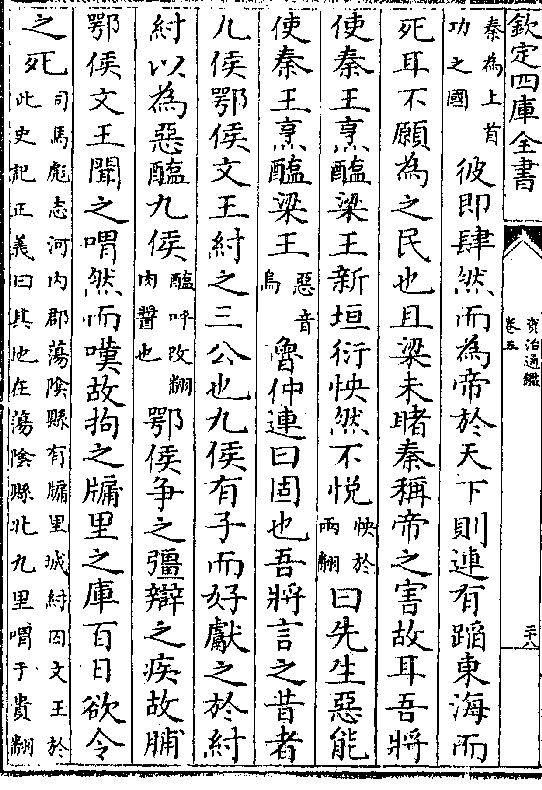 欽定四庫全書
資治通鑑
卷五
二十八
秦為上首功之國彼即肆然而為帝於天下則連有蹈東海而
死耳不願為之民也且梁未睹秦稱帝之害故耳吾將
使秦王烹醢梁王新垣衍怏然不悅怏於兩翻曰先生惡能
使秦王烹醢梁王惡音烏魯仲連曰固也吾將言之昔者
九侯鄂侯文王紂之三公也九侯有子而好獻之於紂
紂以為惡醢九侯醢呼改翻肉醬也鄂侯爭之彊辯之疾故脯
鄂侯文王聞之喟然而嘆故拘之牖里之庫百日欲令
之死司馬彪志河内郡蕩陰縣有牖里城紂囚文王於此史記正義曰其地在蕩陰縣北九里喟于貴翻